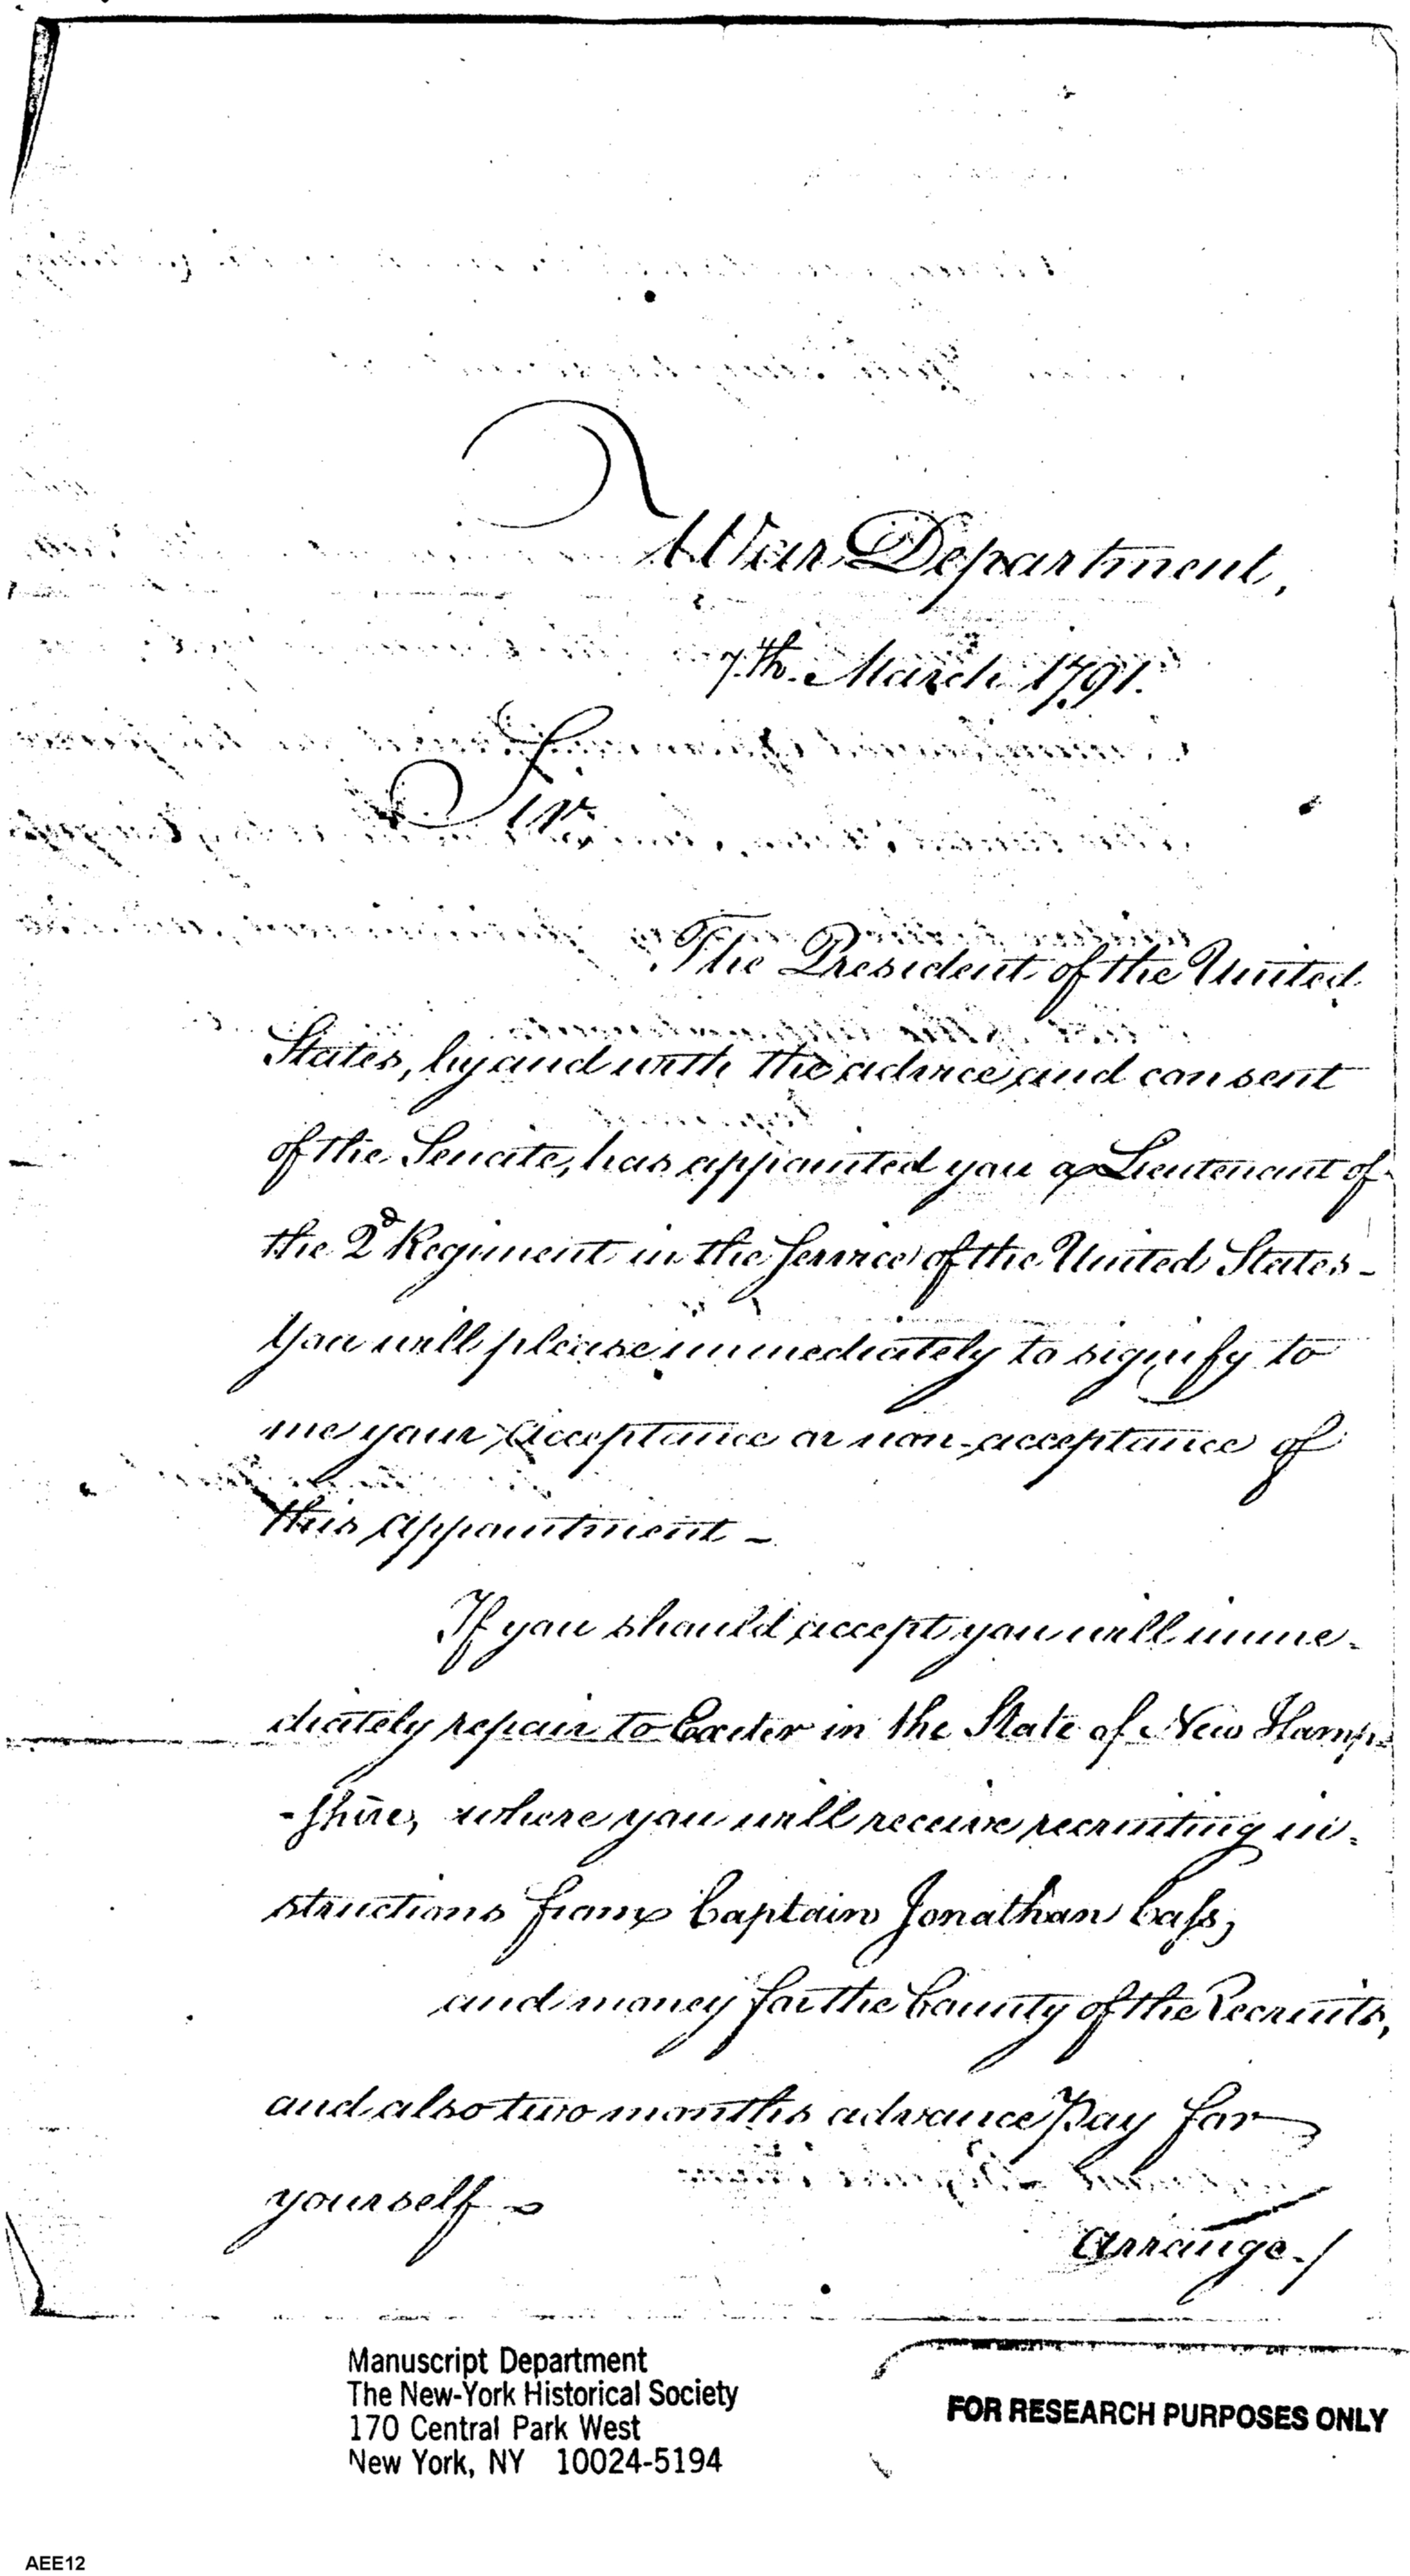 War Department,
7th. March 1791.
Sir
The President of the United
States, by and with the advice and consent
of the Senate, has appointed you a Lieutenant of
the 2d Regiment in the Service of the United States -
You will please immediately to signify to
me your acceptance or non-acceptance of
this appointment -
If you should accept you will imme-
diately repair to Exeter in the State of New Hamp-
-shire, where you will receive recruiting in-
structions from Captain Jonathan Cass,
and money for the bounty of the Recruits,
and also two months advance Pay for
yourself -
Arrange./
Manuscript Department
The New-York Historical Society
170 Central Park West
New York, NY 10024-5194
FOR RESEARCH PURPOSES ONLY
AEE12